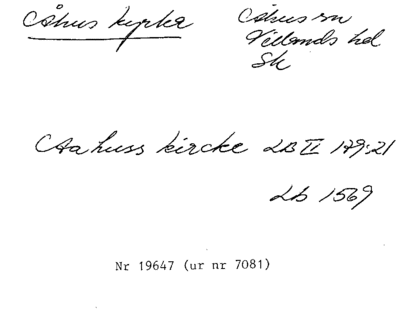 Åhus kyrka
Åhus sn
Villands hd
Sk
Aahuss kircke LB II 179:21
Lb 1569
Nr 19647 (ur nr 7081)